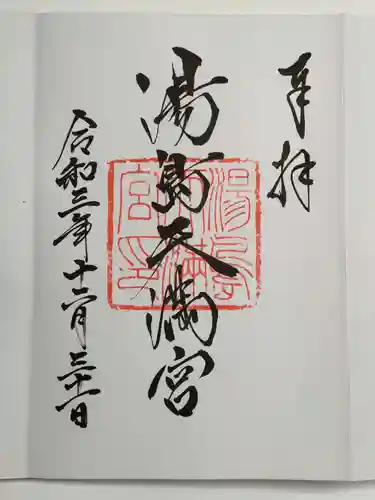 奉拝
湯島天満宮
令和三年十二月三十一日
湯島天満宮印